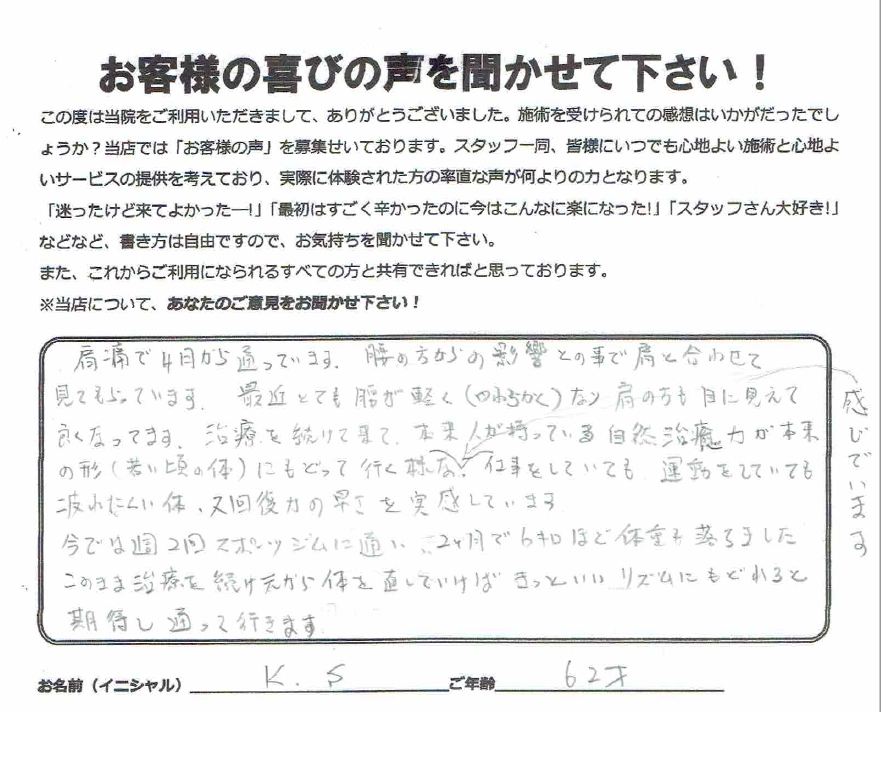 お客様の喜びの声を聞かせて下さい！
この度は当院をご利用いただきまして、ありがとうございました。施術を受けられての感想はいかがだったでし
ょうか？当店では「お客様の声」を募集せいております。スタッフ一同、皆様にいつでも心地よい施術と心地よ
いサービスの提供を考えており、実際に体験された方の率直な声が何よりの力となります。
「迷ったけど来てよかったー!」「最初はすごく辛かったのに今はこんなに楽になった!」「スタッフさん大好き!」
などなど、書き方は自由ですので、お気持ちを聞かせて下さい。
また、これからご利用になられるすべての方と共有できればと思っております。
※当店について、あなたのご意見をお聞かせ下さい！
肩痛で4月から通っています. 腰の方からの影響との事で肩と合わせて
見てもらっています. 最近とても腰が軽く(やわらかく)なり 肩の方も目に見えて
良くなってます. 治療を続けて来て、本来人が持っている自然治癒力が本来
の形(若い頃の体)にもどって行く様な 仕事をしていても、運動をしていても
疲れにくい体、又回復力の早さを実感しています
感じでいます
今では週2回スポーツジムに通い、2ヶ月で6キロほど体重も落ちました
このまま治療を続け 体を直していけば きっといいリズムにもどれると
期待し通って行きます
お名前（イニシャル） K. S ご年齢 62才